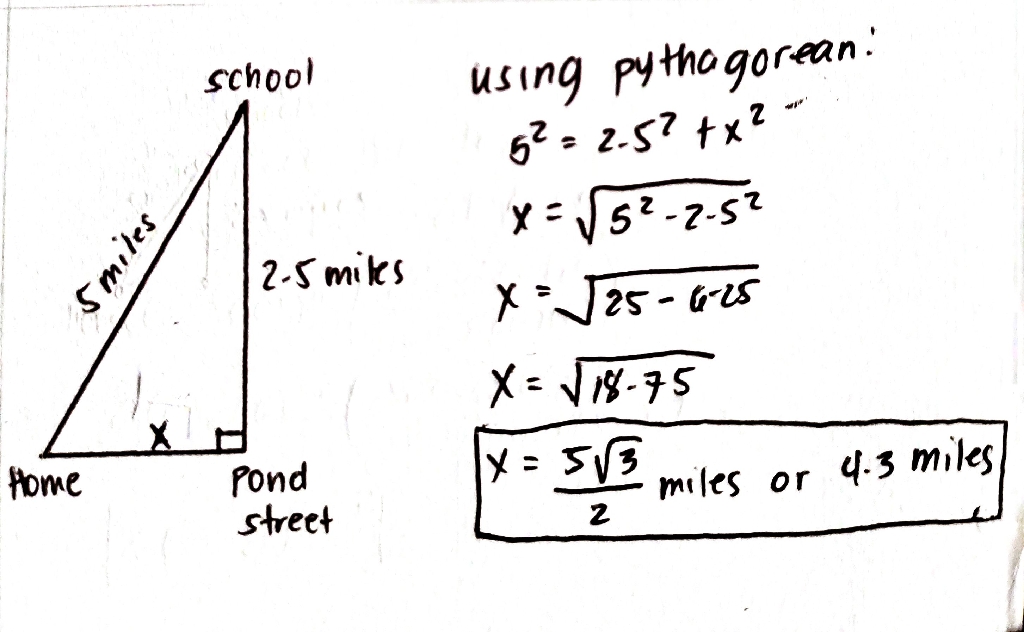 school
5 miles
2.5 miles
x
Home
Pond
street
using pythagorean:
5² = 2.5² + x²
x = √5² - 2.5²
x = √25 - 6.25
x = √18.75
x = 5√3/2 miles or 4.3 miles